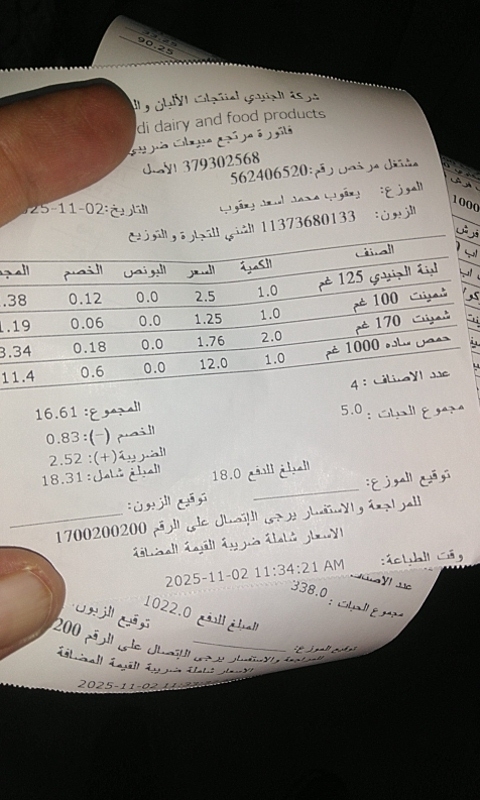 90.25
شركة الجنيدي لمنتجات الألبان
di dairy and food products
فاتورة مرتجع مبيعات ضريبي
379302568 الأصل
مشتغل مرخص رقم:562406520
الموزع: يعقوب محمد اسعد يعقوب
التاريخ:25-11-02
الزبون: 11373680133 الشني للتجارة والتوزيع
الصنف الكمية السعر البونص الخصم المجم
لبنة الجنيدي 125 غم 1.0 2.5 0.0 0.12 .38
شمينت 100 غم 1.0 1.25 0.0 0.06 1.19
شمينت 170 غم 2.0 1.76 0.0 0.18 3.34
حمص ساده 1000 غم 1.0 12.0 0.0 0.6 11.4
عدد الاصناف : 4
مجموع الحبات : 5.0
المجموع: 16.61
الخصم (-): 0.83
الضريبة(+): 2.52
المبلغ شامل: 18.31
المبلغ للدفع 18.0
توقيع الموزع:
توقيع الزبون:
للمراجعة والاستفسار يرجى الإتصال على الرقم 1700200200
الاسعار شاملة ضريبة القيمة المضافة
وقت الطباعة:
2025-11-02 11:34:21 AM
عدد الاصناف
مجموع الحبات : 338.0
المبلغ للدفع 1022.0
توقيع الموزع:
توقيع الزبون:
للمراجعة والاستفسار يرجى الإتصال على الرقم 200
الاسعار شاملة ضريبة القيمة المضافة
2025-11-02
1000